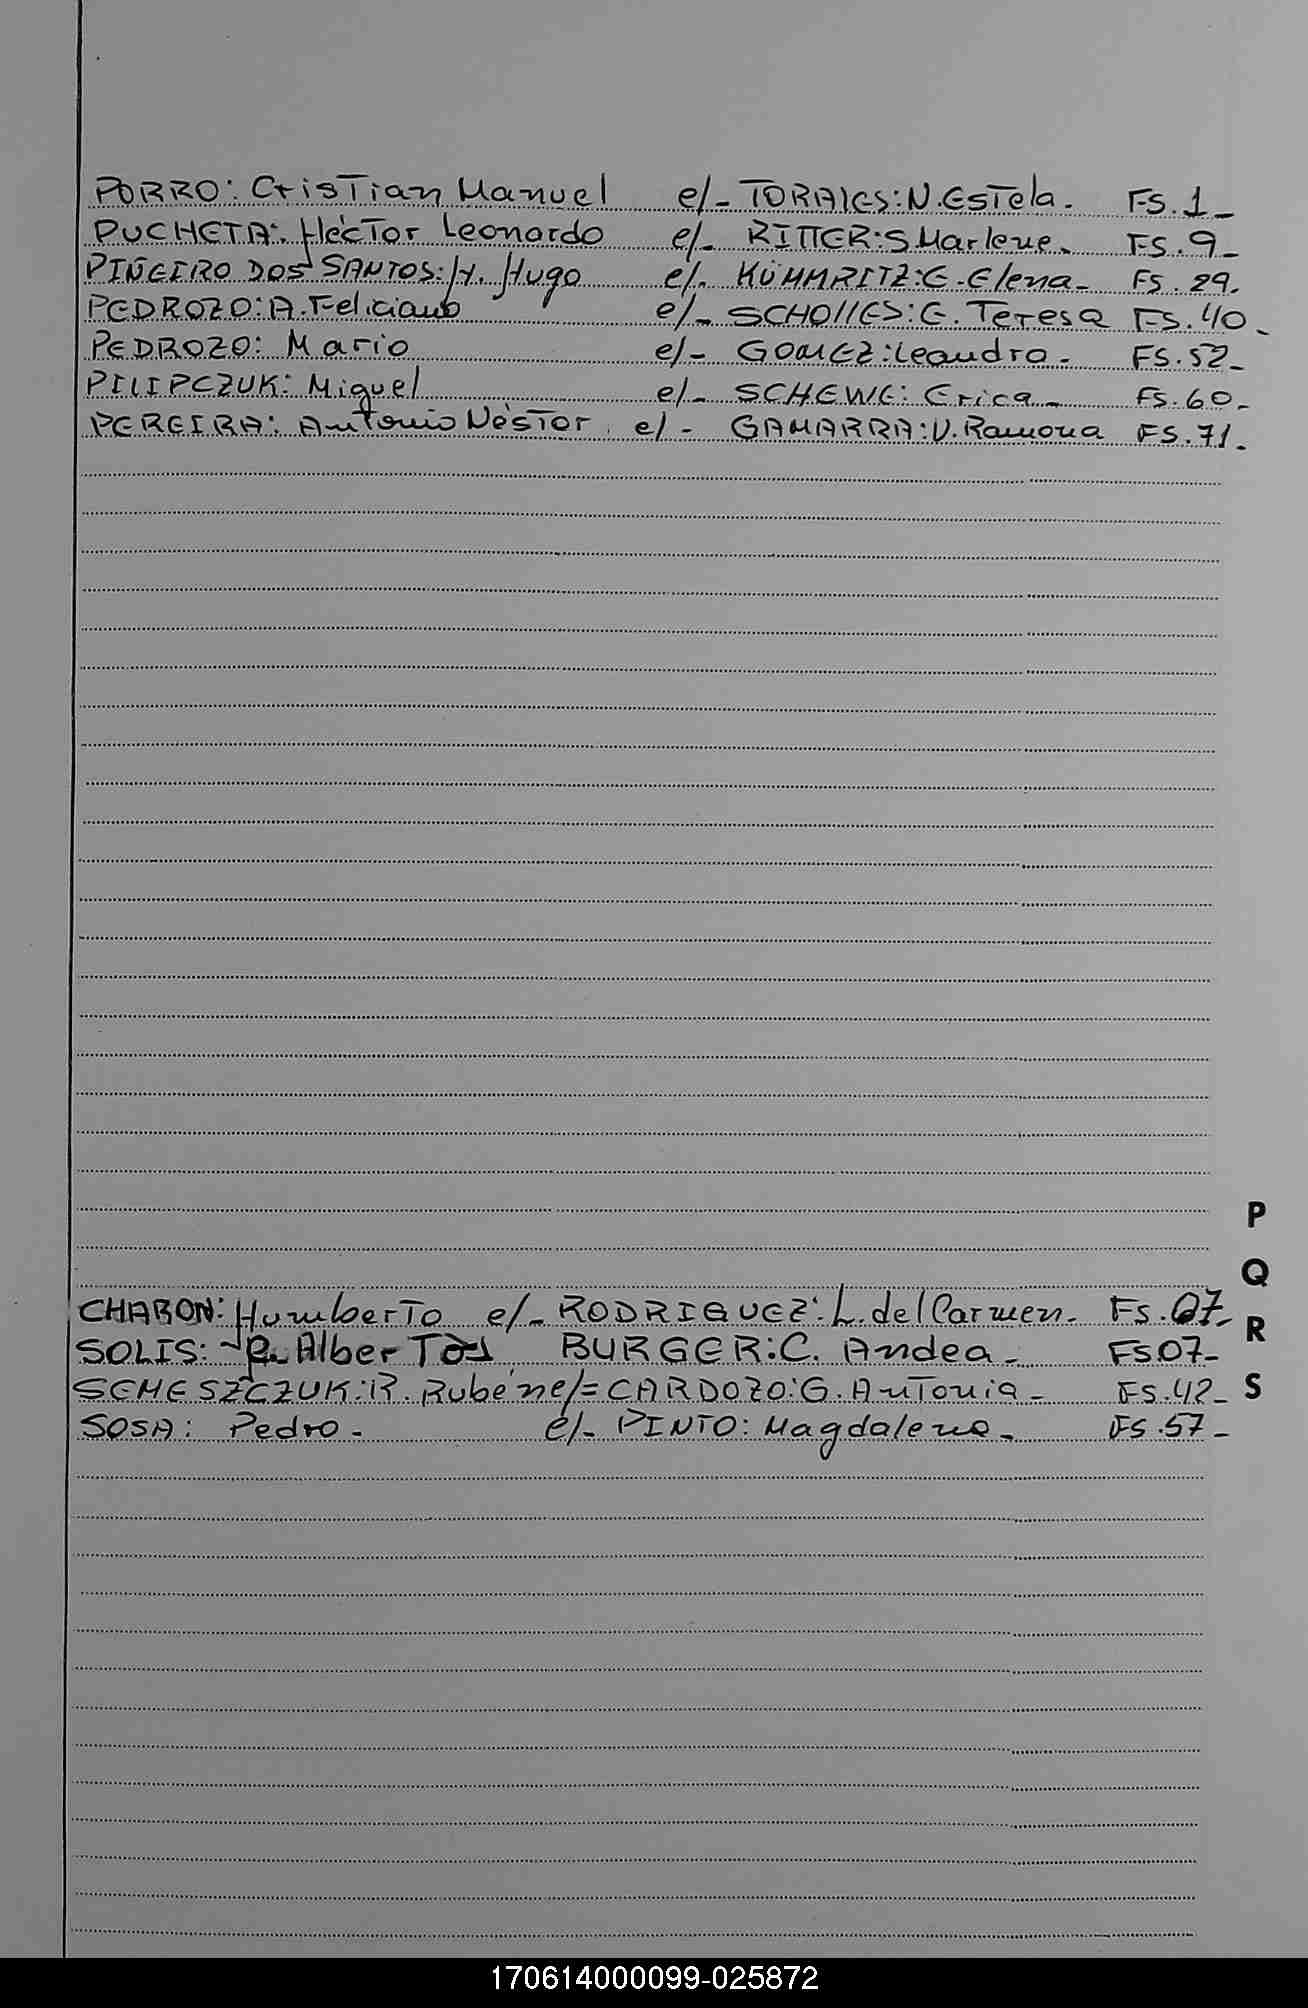 PORRO: Cristian Manuel e/- TORALES: N. Estela. FS. 1-
PUCHETA: Héctor Leonardo e/- RITTER: S Marlene. FS. 9-
PIÑEIRO DOS SANTOS: H. Hugo e/. KÜMMRITZ: E. Elena- FS. 29.
PEDROZO: A. Feliciano e/- SCHOLLES: E. Teresa FS. 40-
PEDROZO: Mario e/- GOMEZ: Leandra. FS. 52-
PILIPCZUK: Miguel e/- SCHEWE: Erica- FS. 60-
PEREIRA: Antonio Néstor e/- GAMARRA: V. Ramona FS. 71-
P
Q
CHARON: Humberto e/- RODRIGUEZ: L. del Carmen. Fs. 07-
R
SOLIS: R. Alberto BURGER: C. Andea- FS 07-
SEMESZCZUK: R. Rubén e/= CARDOZO: G. Antonia- FS. 42-
S
SOSA: Pedro- e/- PINTO: Magdalena- FS. 57-
170614000099-025872